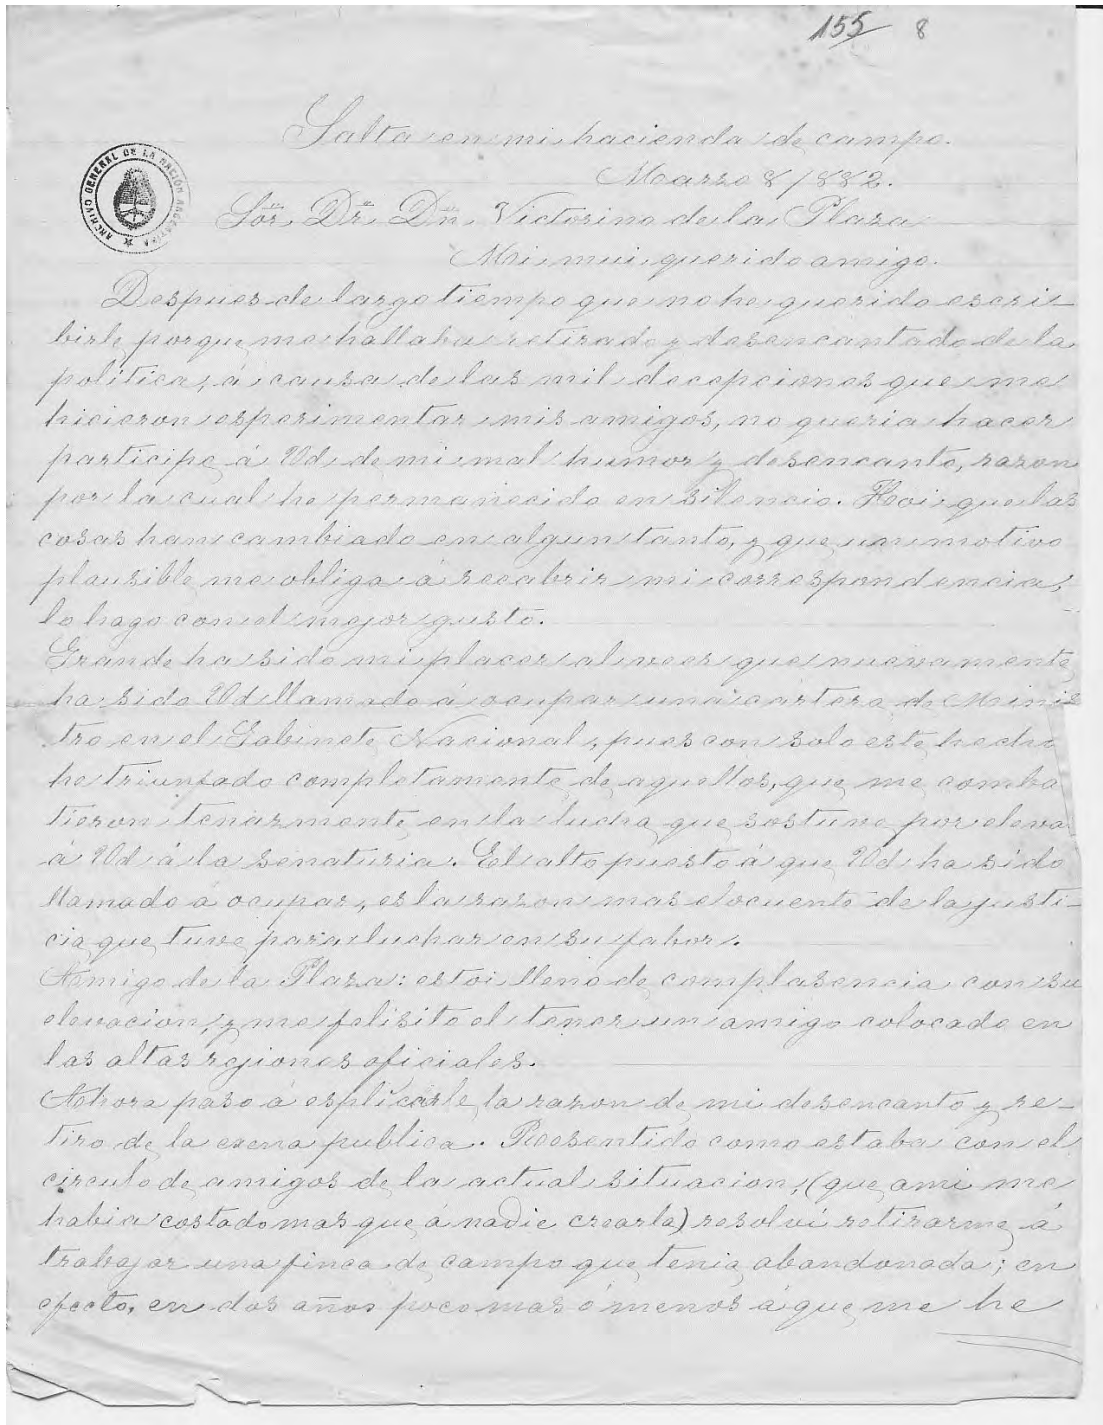 155 8
Salta en mi hacienda de campo.
Marzo 8/882.
ARCHIVO GENERAL DE LA NACION ARGENTINA
Sor. Dr. Dn. Victorino de la Plaza
Mi mui querido amigo.
Despues de largo tiempo que no he querido escri-
birle, porque me hallaba retirado y desencantado de la
política, á causa de las mil decepciones que me
hicieron esperimentar mis amigos, no queria hacer
participe á Ud. de mi mal humor y desencanto, razon
por la cual he permanecido en silencio. Hoi que las
cosas han cambiado en algun tanto, y que un motivo
plausible me obliga á reeabrir mi correspondencia,
lo hago con el mejor gusto.
Grande ha sido mi placer al veer que nuevamente
ha sido Ud llamado á ocupar una cartera de Minis
tro en el Gabinete Nacional, pues con solo este hecho
he triunfado completamente de aquellos, que me comba
tieron tenazmente en la lucha que sostuve por eleva
á Ud á la senaturia. El alto puesto á que Ud ha sido
llamado a ocupar, es la razon mas elocuente de la justi-
cia que tuve para luchar en su fabor.
Amigo de la Plaza: estoi lleno de complasencia con su
elevacion, y me felisito el tener un amigo colocado en
las altas rejiones oficiales.
Ahora paso á esplicarle la razon de mi desencanto y re-
tiro de la esena publica. Reesentido como estaba con el
circulo de amigos de la actual situacion, (que ami me
habia costado mas que á nadie crearla) resolví retirarme á
trabajar una finca de campo que tenia abandonada; en
efecto, en dos años poco mas ó menos á que me he